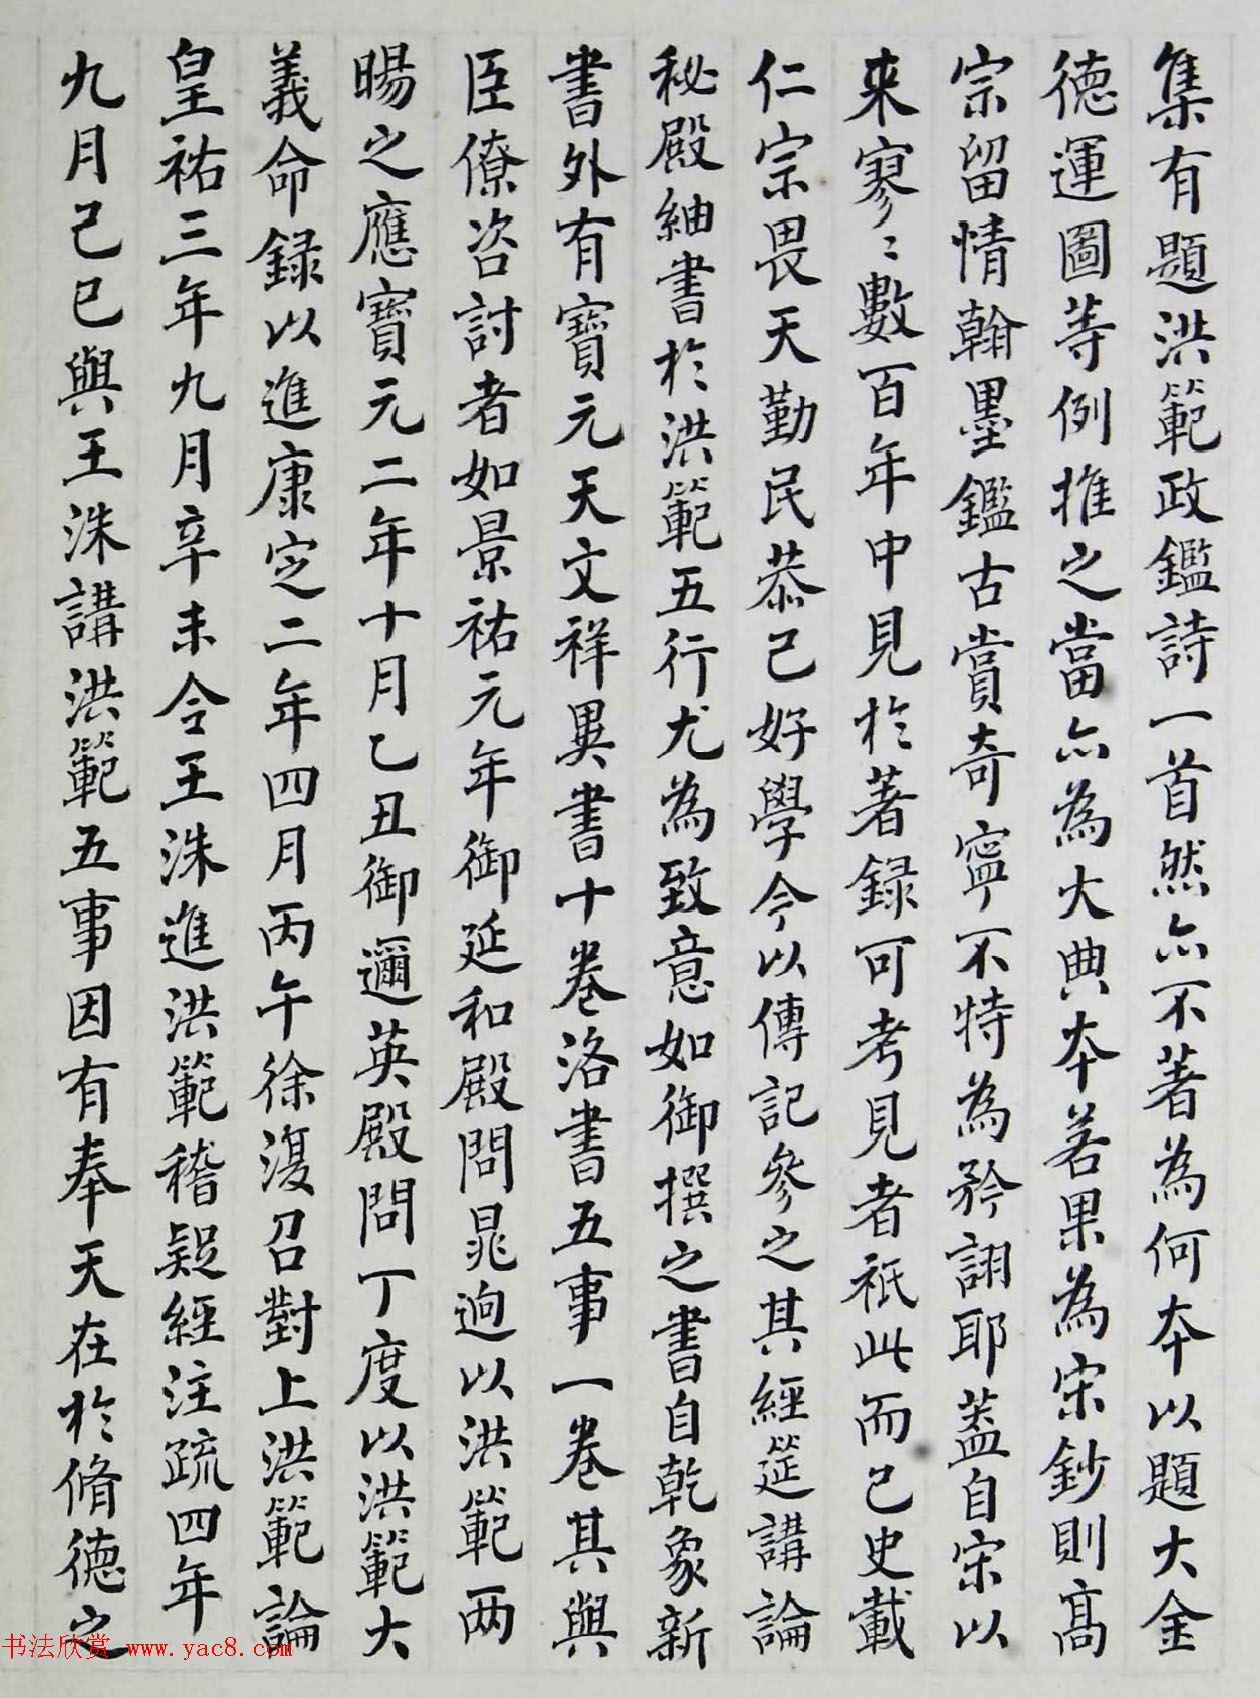 集有題洪範政鑑詩一首然亦不著為何本以題大金
德運圖等例推之當亦為大典本若果為宋鈔則高
宗留情翰墨鑑古賞奇寧不特為矜詡耶蓋自宋以
來寥〻數百年中見於著録可考見者祇此而已史載
仁宗畏天勤民恭己好學今以傳記參之其經筵講論
秘殿紬書於洪範五行尤為致意如御撰之書自乾象新
書外有寶元天文祥異書十卷洛書五事一卷其與
臣僚咨討者如景祐元年御延和殿問晁迥以洪範雨
暘之應寶元二年十月乙丑御邇英殿問丁度以洪範大
義命録以進康定二年四月丙午徐復召對上洪範論
皇祐三年九月辛未令王洙進洪範稽疑經注疏四年
九月己巳與王洙講洪範五事因有奉天在於脩德定
书法欣赏 www.yac8.com